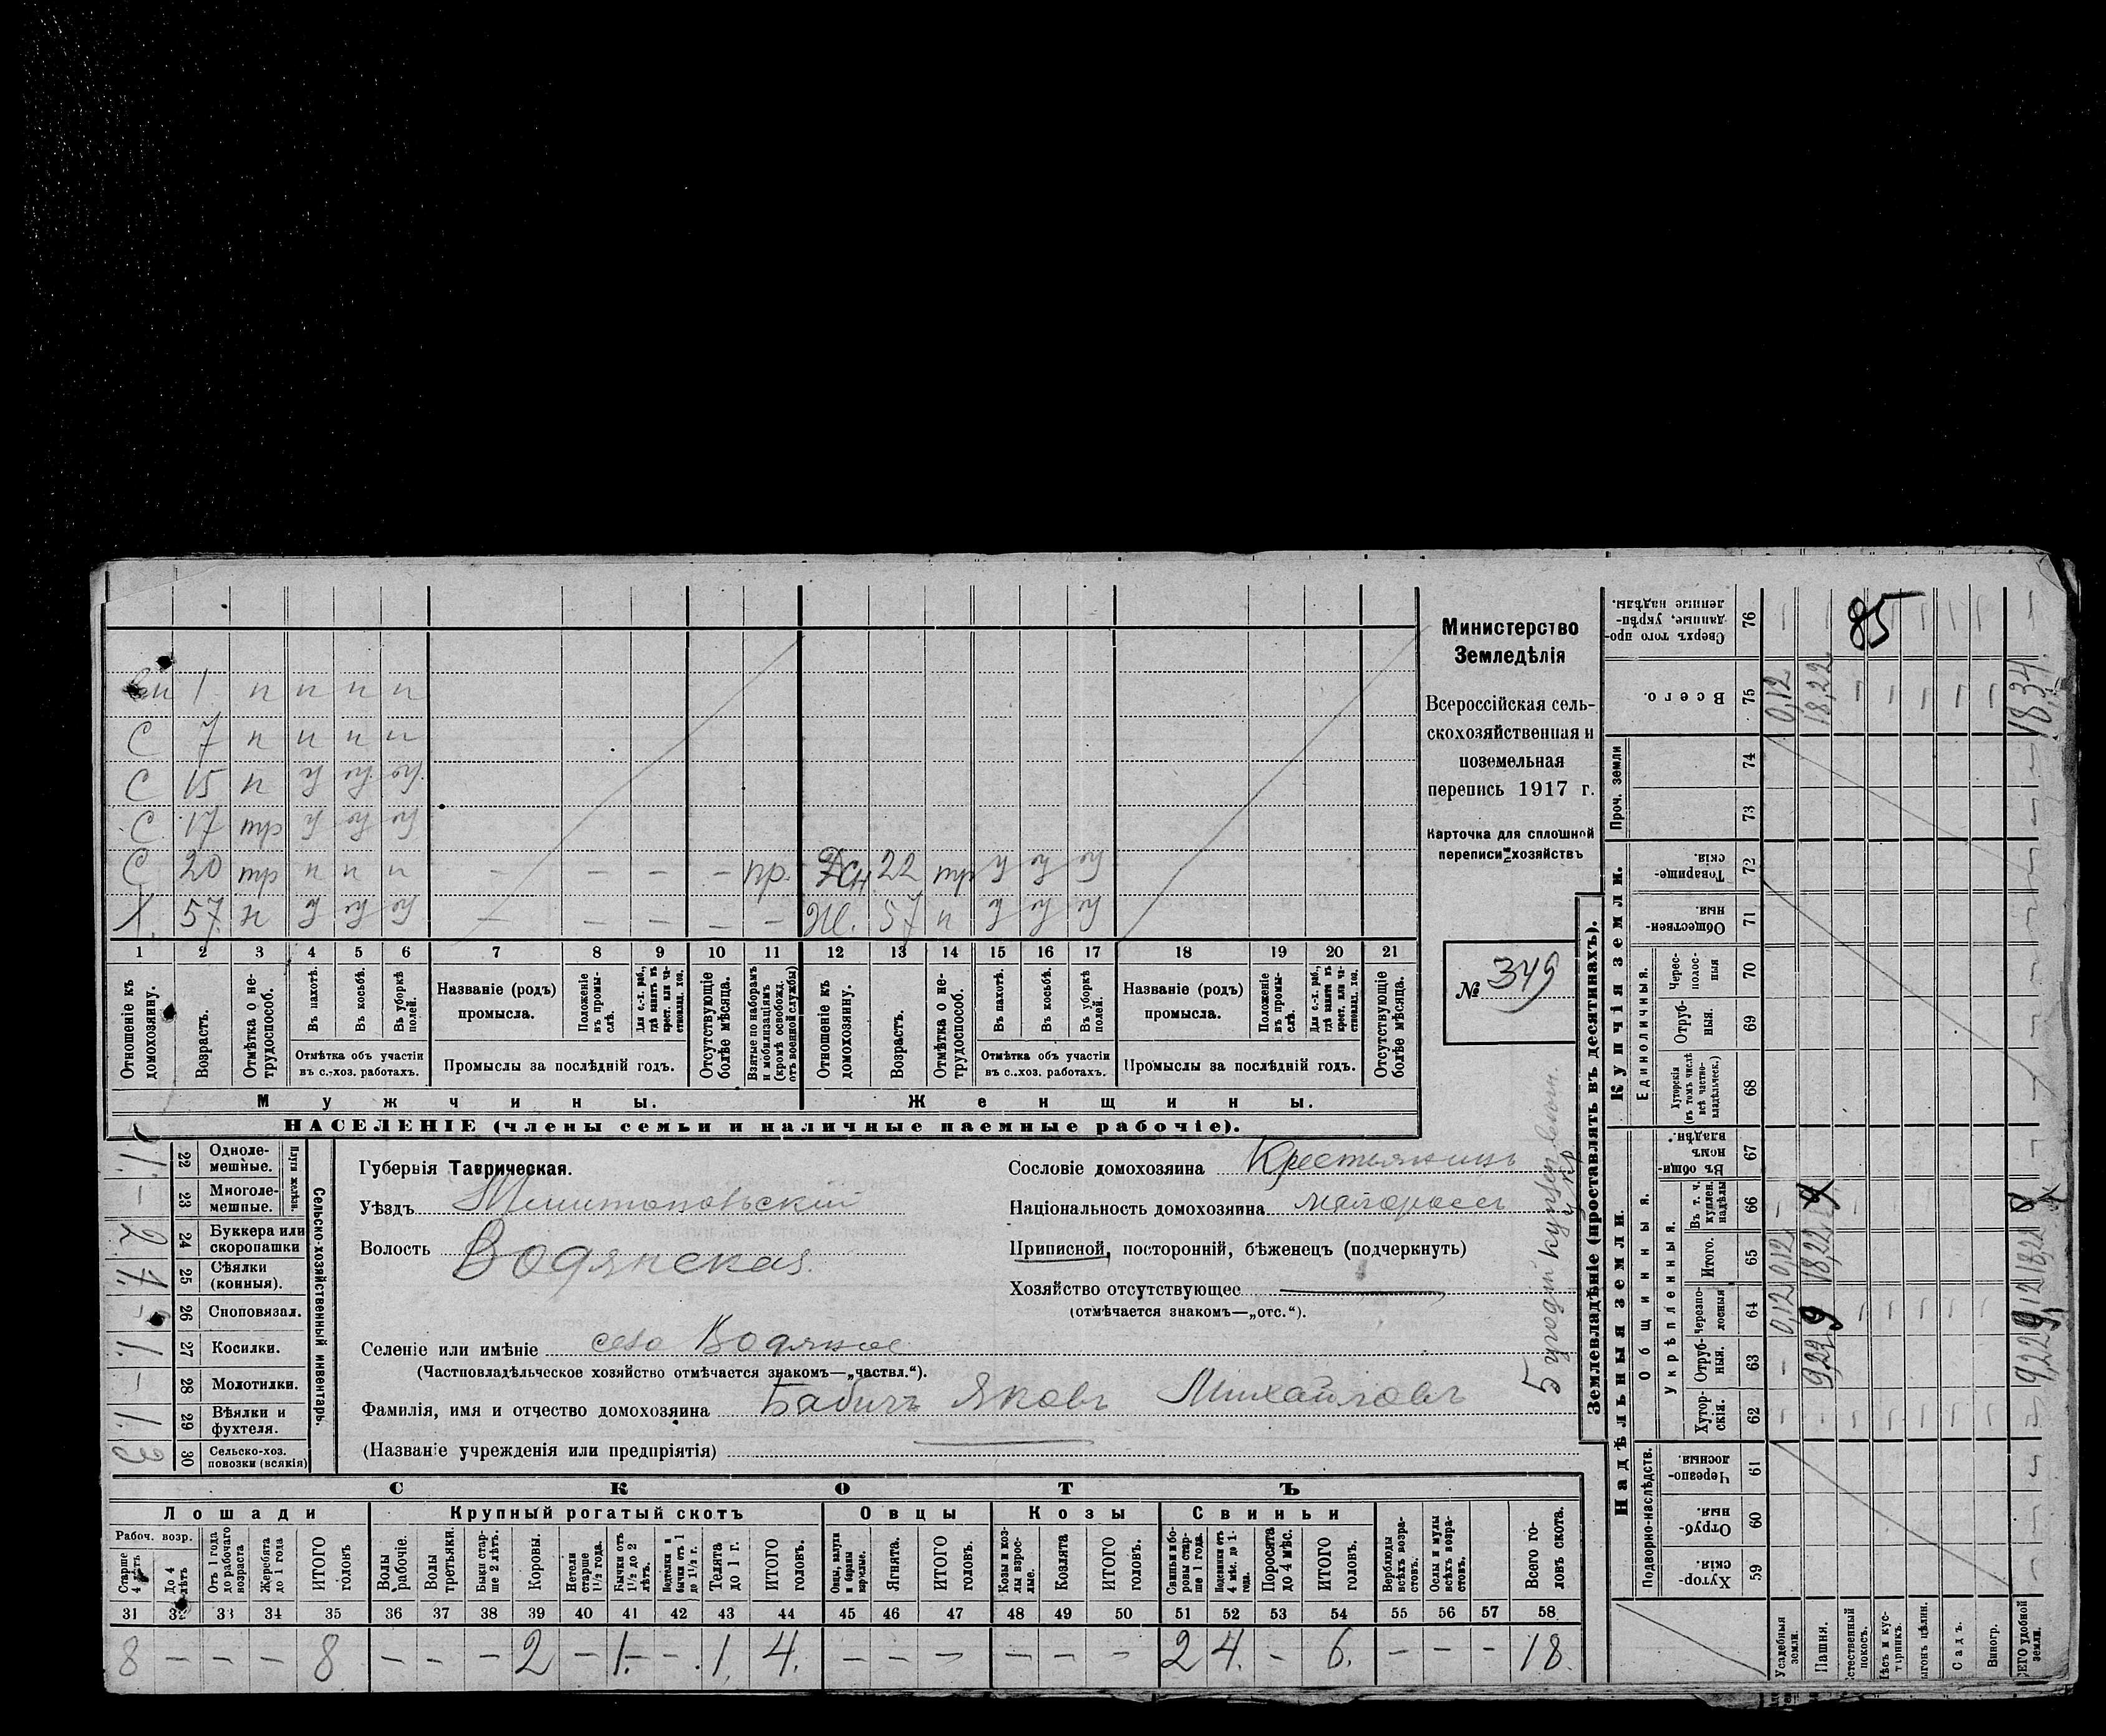 Министерство
Земледѣлія
Всероссійская сель-
скохозяйственная и
поземельная
перепись 1917 г.
Карточка для сплошной
переписи хозяйствъ
№ 349
вн 1 п п п п
С 7 п п п п
С 15 п
С 17
С 20 тр п п п – – – – пр. 22 тр
57 н – – – – – Ж. 57 п
1 2 3 4 5 6 7 8 9 10 11 12 13 14 15 16 17 18 19 20 21
Отношеніе къ домохозяину.
Возрастъ.
Отмѣтка о не-трудоспособ.
Въ пахотѣ.
Въ косьбѣ.
Въ уборкѣ полей.
Отмѣтка объ участіи въ с.-хоз. работахъ.
Названіе (родъ) промысла.
Положеніе въ промы-слѣ.
Для с.-х. раб., гдѣ занятъ въ крест. или ча-ствовлад. хоз.
Промыслы за послѣдній годъ.
Отсутствующіе болѣе мѣсяца.
Взятые по наборамъ и мобилизаціямъ (кромѣ освобожд. отъ военной службы)
Отношеніе къ домохозяину.
Возрастъ.
Отмѣтка о не-трудоспособ.
Въ пахотѣ.
Въ косьбѣ.
Въ уборкѣ полей.
Отмѣтка объ участіи въ с.-хоз. работахъ.
Названіе (родъ) промысла.
Положеніе въ промы-слѣ.
Для с.-х. раб., гдѣ занята въ крест. или ча-ствовлад. хоз.
Промыслы за послѣдній годъ.
Отсутствующіе болѣе мѣсяца.
Мужчины. Женщины.
НАСЕЛЕНІЕ (члены семьи и наличные наемные рабочіе).
Сельско-хозяйственный инвентарь.
Плуги желѣзн.
1. 22 Однолемешные.
– 23 Многолемешные.
2 24 Буккера или скоропашки
1. 25 Сѣялки (конныя).
– 26 Сноповязал.
1. 27 Косилки.
– 28 Молотилки.
1. 29 Вѣялки и фухтеля.
3 30 Сельско-хоз. повозки (всякія)
Губернія Таврическая.
Уѣздъ Мелитопольскій
Волость Водянская.
Селеніе или имѣніе село Водяное
(Частновладѣльческое хозяйство отмѣчается знакомъ—„частвл.“).
Фамилія, имя и отчество домохозяина Бабичъ Яковъ Михайловъ
(Названіе учрежденія или предпріятія)
Сословіе домохозяина Крестьянинъ
Національность домохозяина малороссъ
Приписной, посторонній, бѣженецъ (подчеркнуть)
Хозяйство отсутствующее
(отмѣчается знакомъ—„отс.“).
СКОТЪ
Лошади Крупный рогатый скотъ Овцы Козы Свиньи
Рабоч. возр.
Старше 4 лѣтъ
До 4 лѣтъ
Отъ 1 года до рабочаго возраста
Жеребята до 1 года
ИТОГО головъ
Волы рабочіе.
Волы третьяки.
Быки стар-ше 2 лѣтъ.
Коровы.
Нетели старше 1½ года.
Бычки отъ 1½ до 2 лѣтъ.
Подтелки и бычки отъ 1 до 1½ г.
Телята до 1 г.
ИТОГО головъ.
Овцы, валухи и бараны взрослые.
Ягнята.
ИТОГО головъ.
Козы и коз-лы взрос-лые.
Козлята
ИТОГО головъ.
Свиньи и бо-ровы стар-ше 1 года.
Подсвинки отъ 4 мѣс. до 1-года.
Поросята до 4 мѣс.
ИТОГО головъ.
Верблюды всѣхъ возра-стовъ.
Ослы и мулы всѣхъ возра-стовъ.
Всего го-ловъ скота.
31 32 33 34 35 36 37 38 39 40 41 42 43 44 45 46 47 48 49 50 51 52 53 54 55 56 57 58
8 – – – 8 – – – 2 – 1. – 1. 4. – – – – – – 2 4. – 6. – – – 18.
Землевладѣніе (проставлять въ десятинахъ).
Надѣльныя земли. Купчія земли. Проч. земли
Подворно-наслѣдств. Общинныя. Укрѣпленныя. Единоличныя.
59 Хутор-скія.
60 Отруб-ныя.
61 Черезпо-лосныя
62 Хутор-скія.
63 Отруб-ныя.
64 Черезпо-лосныя
65 Итого.
66 Въ т. ч. куплен. надѣлы
67 Въ общин-номъ владѣн.
68 Хуторскія (въ томъ числѣ всѣ частно-владѣльческ.)
69 Отруб-ныя.
70 Черес-полос-ныя
71 Обществен-ныя.
72 Товарище-скія.
73
74
75 Всего.
76 Сверхъ того про-данные, укрѣп-ленные надѣлы.
Усадебныя земли. – – 0,12 0,12 – 0,12
Пашня. – 9,22 9 18,22 18,22
85
Садъ.
Виногр.
18,34